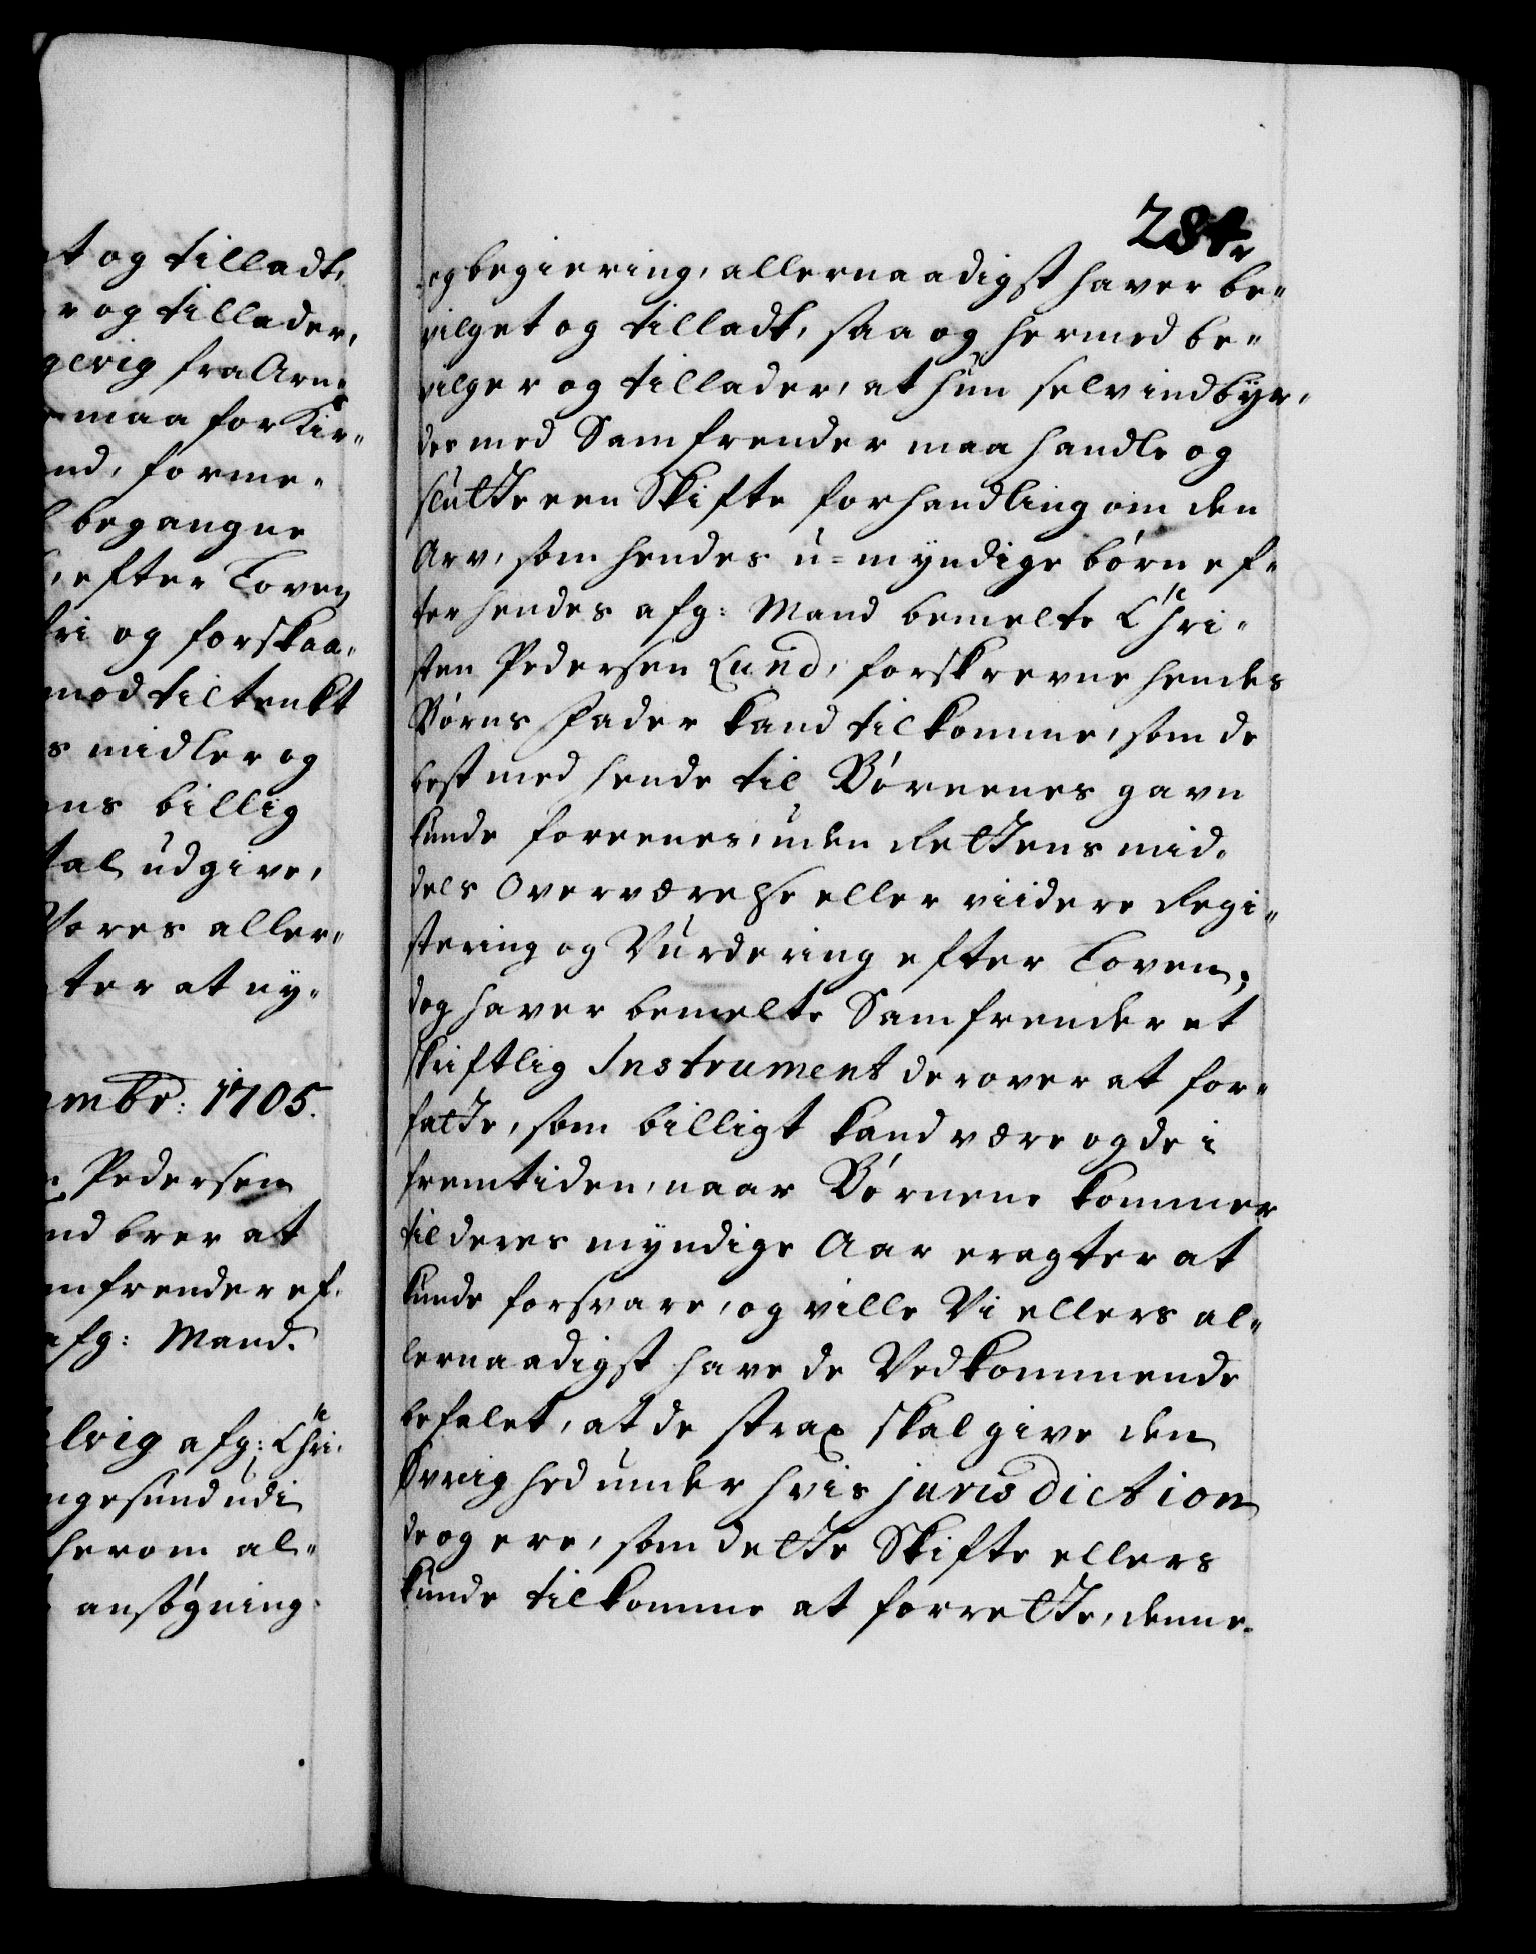 t og tilladt,
r og tillader,
gevig fra Arn-
maa for Kir-
nd, forme-
begangne
, efter Loven
fri og forskaa-
mod tiltenkt
s midler og
ns billig
tal udgive,
Vores aller-
ter at ny-
mbr: 1705.
Pedersen
nd brer at
mfrender ef-
afg: Mand.
lvig afg: Chri-
ngesund udi
herom al-
ansøgning
284
og begiering, allernaadigst haver be-
vilget og tilladt, saa og hermed be-
vilger og tillader, at hun selv indbyr-
des med Samfrender maa handle og
slutte een Skifte forhandling om den
Arv, som hendes u-myndige børn ef-
ter hendes afg: Mand bemelte Chri-
sten Pedersen Lund, forskrevne hendes
Børns Fader kand tilkomme, som de
best med hende til Børnenes gavn
kunde foreenes, uden Rettens mid-
dels Overværelse eller viidere Regi-
stering og Vurdering efter Loven;
dog haver bemelte Samfrender et
skriftlig Instrument derover at for-
fatte, som billigt kand være og de i
fremtiden, naar Børnene kommer
til deres myndige Aar eragter at
kunde forsvare, og ville Vi ellers al-
lernaadigst have de Vedkommende
befalet, at de strax skal give den
Øvrighed under hvis jurisdiction
de og ere, som dette Skifte ellers
kunde tilkomme at forrette, denne